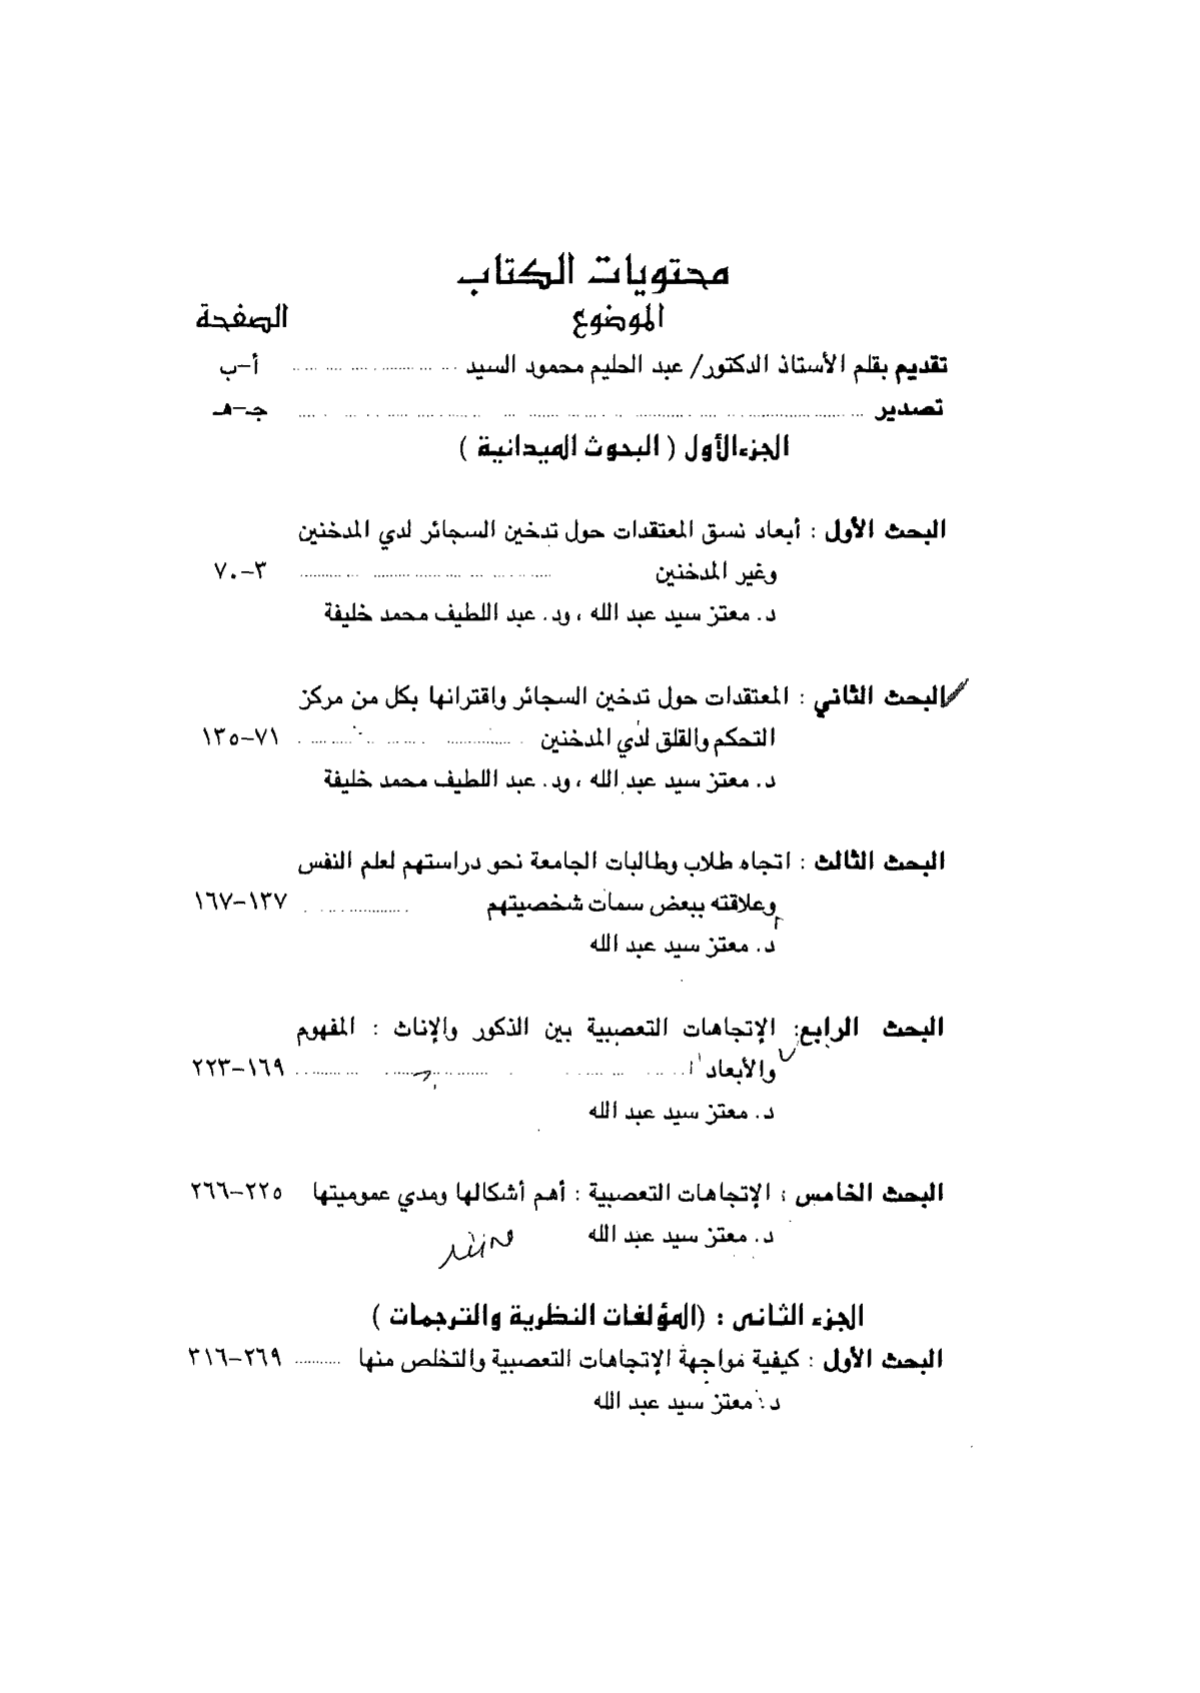 محتويات الكتاب
الموضوع الصفحة
تقديم بقلم الأستاذ الدكتور/ عبد الحليم محمود السيد ........ أ-ب
تصدير ........ جـ-هـ
الجزء الأول ( البحوث الميدانية )
البحث الأول : أبعاد نسق المعتقدات حول تدخين السجائر لدي المدخنين
وغير المدخنين ........ ٣-٧٠
د. معتز سيد عبد الله ، ود. عبد اللطيف محمد خليفة
البحث الثاني : المعتقدات حول تدخين السجائر واقترانها بكل من مركز
التحكم والقلق لدي المدخنين ........ ٧١-١٣٥
د. معتز سيد عبد الله ، ود. عبد اللطيف محمد خليفة
البحث الثالث : اتجاه طلاب وطالبات الجامعة نحو دراستهم لعلم النفس
وعلاقته ببعض سمات شخصيتهم ........ ١٣٧-١٦٧
د. معتز سيد عبد الله
البحث الرابع: الإتجاهات التعصبية بين الذكور والإناث : المفهوم
والأبعاد ........ ١٦٩-٢٢٣
د. معتز سيد عبد الله
البحث الخامس : الإتجاهات التعصبية : أهم أشكالها ومدي عموميتها ٢٢٥-٢٦٦
د. معتز سيد عبد الله
الجزء الثانى : (المؤلفات النظرية والترجمات )
البحث الأول : كيفية مواجهة الإتجاهات التعصبية والتخلص منها ........ ٢٦٩-٣١٦
د. معتز سيد عبد الله